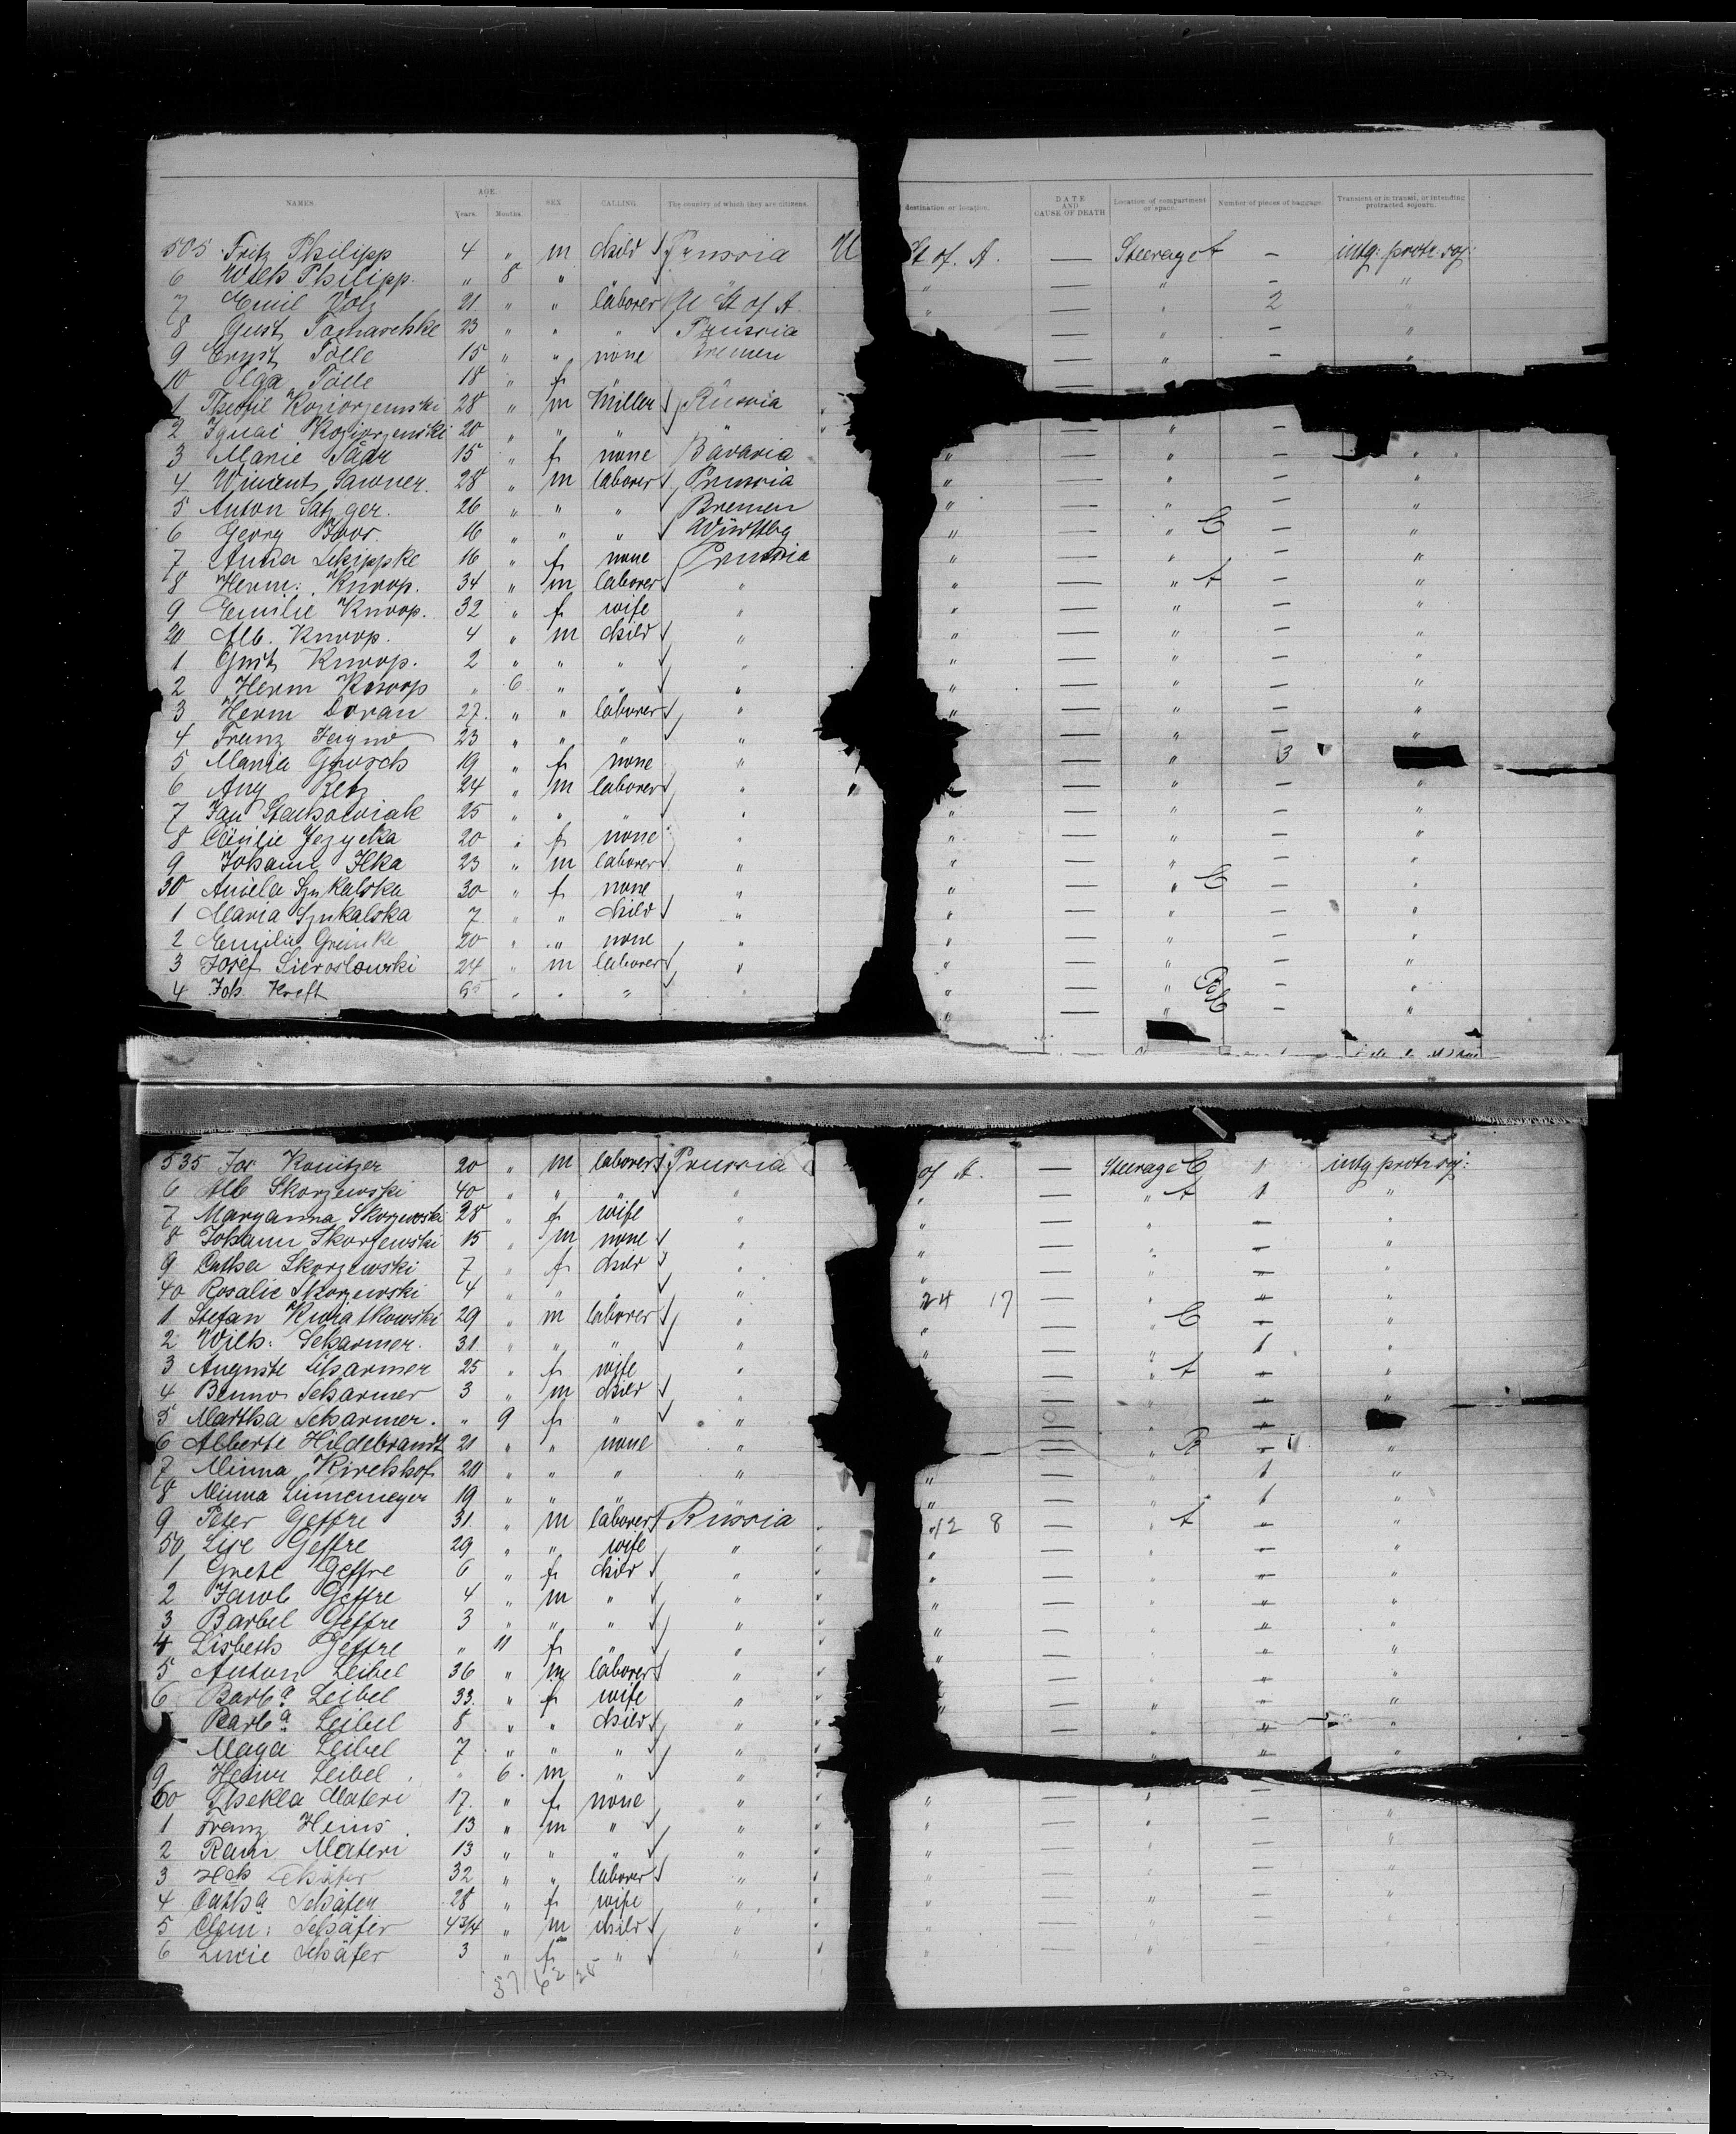 NAMES. AGE. Years. Months. SEX CALLING. The country of which they are citizens. destination or location. DATE AND CAUSE OF DEATH Location of compartment or space. Number of pieces of baggage. Transient or in transit, or intending protracted sojourn.
505 Fritz Philipp 4 " m child Prussia U St of. A. — Steerage A - intg: protr. soj:
6 Wilh Philipp. " 8 " " — " - "
7 Emil Volz 21 " " laborer U St of A. " — " 2 "
8 Gust 23 " " " Prussia — " - "
9 Ernst Tölle 15 " " none Bremen — " - "
10 Olga Tölle 18 " f " —
1 Theofil 28 " m Miller Russia
2 Ignac 20 " " " " — " -
3 Marie 15 " f none Bavaria " — " "
4 28 " m laborer Prussia " — " - "
5 Anton Satzger. 26 " " " Bremen " — " - "
6 Georg 16 " " " Württbg " — " C - "
7 Anna Schippke 16 " f none Prussia " — " - "
8 Herm: Knoop. 34 " m laborer " " — " A - "
9 Emilie Knoop. 32 " f wife " — " - "
20 Alb. Knoop. 4 " m child " " — " - "
1 Gust Knoop. 2 " " " " " — " - "
2 Herm Knoop " 6 " " " " — " - "
3 Herm Doran 27. " " laborer " " — " - "
4 Franz 23 " " " " — " - "
5 Maria Grosch 19 " f none " — " 3
6 Aug Retz 24 " m laborer " " — " - "
7 Jan Stachowiak 25 " " " " " — " - "
8 Cäcilie Jezycka 20 " f none " — " - "
9 Johann Ilka 23 " m laborer " " — " - "
30 Aniela Szukalska 30 " f none " " — " C - "
1 Maria Szukalska 7 " " child " " — " - "
2 Emilie Greinke 20 " " none " " — " - "
3 Josef Sieroslowski 24 " m laborer " " — " - "
4 Joh. Kreft " " " " —
535 Jos Konitzer 20 " m laborer Prussia of A. — Steerage C 1 intg protr soj:
6 Alb Skorzewski 40 " " " " " — " A 1 "
7 Maryanna Skorzewski 28 " f wife " — - "
8 Johann Skorzewski 15 " m none " " — " - "
9 Catha Skorzewski 7 " f child " " — " - "
40 Rosalie Skorzewski 4 " " " " 24 17 — " - "
1 Stefan Kwiatkowski 29 " m laborer " " — " C - "
2 Wilh: Scharmer. 31. " " " " " — " 1 "
3 Auguste Scharmer 25 " f wife " — " A - "
4 Benno Scharmer 3 " m child " — " - "
5 Martha Scharmer. " 9 f " " — " -
6 Alberte Hildebrandt 21 " " none " — " B - "
7 Minna Kirchhof 20 " " " " " — " 1 "
8 Minna Linnemeyer 19 " " " " — " 1 "
9 Peter Geffre 31. " m laborer Russia 12 8 — " A - "
50 Lise Geffre 29 " " wife " " — " - "
1 Grete Geffre 6 " f child " " — " - "
2 Jacob Geffre 4 " m " " " — " - "
3 Barbel Geffre 3 " " " " " — " - "
4 Lisbeth Geffre " 11 f " " " — " - "
5 Anton Leibel 36 " m laborer " — " - "
6 Barbª Leibel 33. " f wife " " — " - "
Barbª Leibel 8 " " child " — " - "
Maga Leibel 7 " " " " — " - "
9 Heinr Leibel " 6. m " "
60 Thekla Materi 17. " f none " " — " - "
1 Franz Heins 13 " m " " " — " - "
2 Materi 13 " " " " " — " - "
3 Hch Schäfer 32 " " laborer " " — " - "
4 Cathª Schäfer 28 " f wife " " — " - "
5 Clem: Schäfer 4 3/4 " m child " " — " - "
6 Lucie Schäfer 3 " f " " " — " - "
37 62 28